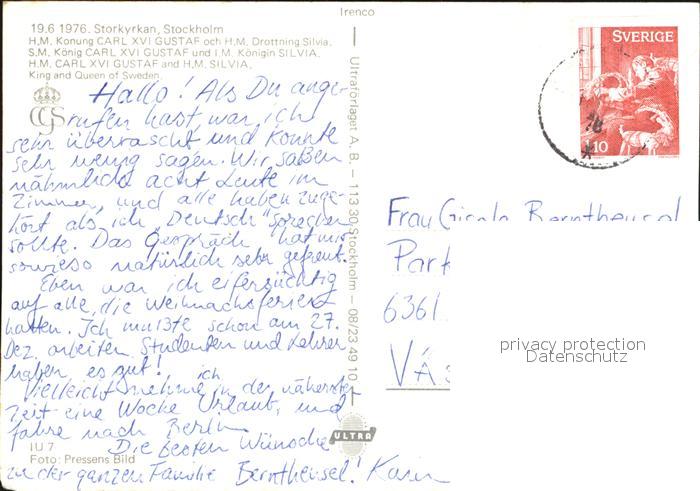 Irenco
19.6 1976. Storkyrkan, Stockholm
H.M. Konung CARL XVI GUSTAF och H.M. Drottning Silvia.
S.M. König CARL XVI GUSTAF und I.M. Königin SILVIA.
H.M. CARL XVI GUSTAF and H.M. SILVIA.
King and Queen of Sweden.
Hallo! Als Du ange-
rufen hast war ich
sehr überrascht und konnte
sehr wenig sagen. Wir saßen
nähmlich acht Leute im
Zimmer, und alle haben zuge-
hört als ich "Deutsch" sprechen
sollte. Das Gespräch hat mir
sowieso natürlich sehr gefreut.
Eben war ich eifersüchtig
auf alle, die Weihnachsferien
hatten. Ich mußte schon am 27.
Dez. arbeiten. Studenten und Lehrer
haben es gut!
Vielleicht nehme ich in der nähersten
Zeit eine Woche Urlaub, und
fahre nach Berlin.
Die besten Wünsche
zu der ganzen Familie Berntheusel! Karin
IU 7
Foto: Pressens Bild
Ultraförlaget A. B. — 113 30 Stockholm — 08/23 49 10
ULTRA
SVERIGE
110
78
Frau Berntheusel
Park
6361
privacy protection
Datenschutz